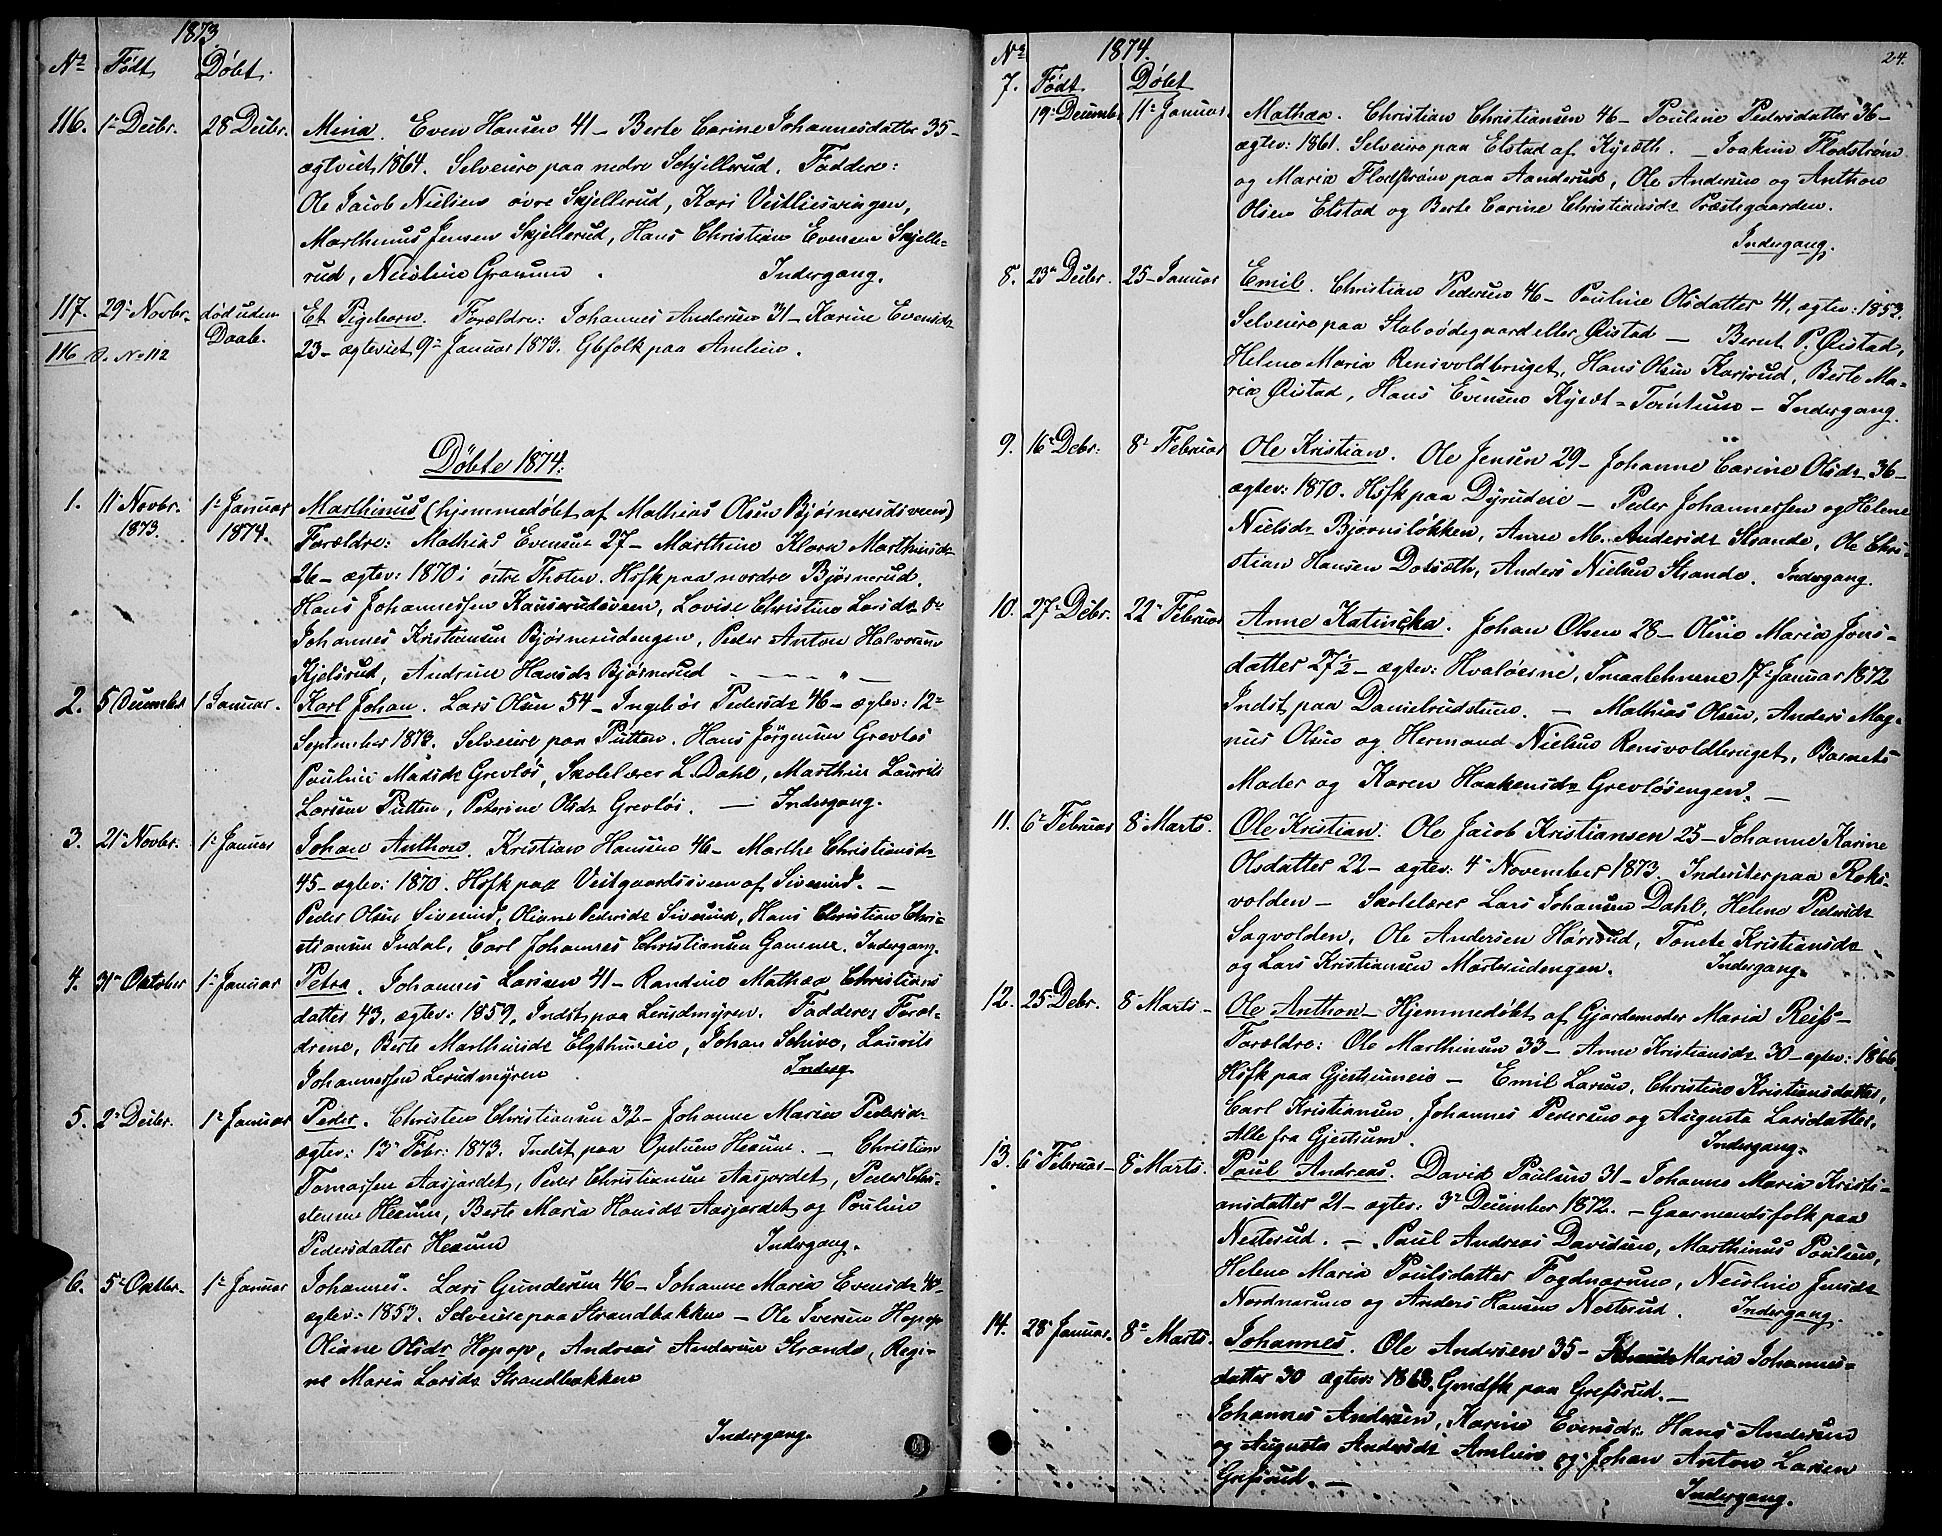 1873
No Født Døbt.
116. 1ste Decbr. 28 Decbr. Mina. Even Hansen 41 – Berte Carine Johannesdatter 35 –
ægtviet 1864. Selveiere paa nedre Skjellerud. Faddere:
Ole Jacob Nielsen øvre Skjellerud, Kari Vestliesvingen,
Marthinus Jensen Skjellerud, Hans Christian Evensen Skjelle-
rud, Nicoline Granum. Indergang.
117. 29de Novbr. død uden Et Pigebarn. Forældre: Johannes Andersen 31 – Karine Evensdr
Daab. 23 – ægteviet 9de Januar 1873. Gbfolk paa Amlien.
116 s. No 112
Døbte 1874.
1. 11 Novbr. 1ste Januar Marthinus (hjemmedøbt af Mathias Olsen Bjørnerudsveen)
1873. 1874. Forældre: Mathias Evensen 27 – Marthine Klara Marthinsdr
26 – ægtev: 1870 i østre Thoten. Hsfk paa nordre Bjørnerud.
Hans Johannessen Kauserudsveen, Lovise Christine Larsdr
Johannes Kristiansen Bjørnerudengen, Peder Anton Halvorsen
Kjelsrud, Andrine Hansdr Bjørnerud – – – – " –
2. 5 December 1 Januar. Karl Johan. Lars Olsen 54 – Ingebor Pedersdr 46 – ægtev: 12te
September 1873. Selveiere paa Putten. Hans Jørgensen Grevløs
Pauline Madsdr Grevløs, Skolelærer L. Dahl, Marthin Laurits
Larsen Putten, Peterine Olsdr Grevløs. – Indergang.
3. 21de Novbr. 1ste Januar Johan Anthon. Kristian Hansen 46 – Marthe Christiansdr
45 – ægtev: 1870. Hsfk paa Vestgaardsveen af Sivesind. –
Peder Olsen Sivesind, Oliane Pedersdr Sivesind, Hans Christian Chri-
stiansen Indal, Carl Johannes Christiansen Gamme. Indergang.
4. 31te October 1ste Januar Petra. Johannes Larsen 41 – Randine Mathea Christians
datter 43, ægtev: 1859, Indst paa Lerudmyren. Faddere Foræl-
drene, Berte Marthinsdr Elgsthuneie, Johan Schive, Laurits
Johannessen Lerudmyren Inderg.
5. 2den Decbr. 1ste Januar Peder. Christen Christiansen 32 – Johanne Maria Pedersdr
ægtev: 13de Febr: 1873. Indst paa Hexum. – Christian
Tomassen Aasjordet, Peder Christiansen Aasjordet, Peder Chri-
stensen Hexum, Berte Maria Hansdr Aasjordet og Pauline
Pedersdatter Hexum Indergang.
6. 5te Octbr. 1ste Januar Johannes. Lars Gundersen 46 – Johanne Maria Evensdr 40
ægtev: 1853. Selveiere paa Strandbakken – Ole Iversen Hopop
Oliane Olsdr Hopop, Andreas Andersen Strande, Regi-
ne Maria Larsdr Strandbakken
Indergang.
24.
No 1874.
Født Døbt
7. 19de Decemb. 11te Januar. Mathea. Christian Christiansen 46 – Pauline Pedersdatter 36 –
ægtev: 1861. Selveiere paa Elstad af Kjøsth. – Joakim Flodstrøm
og Maria Flodstrøm paa Aanderud, Ole Andersen og Anthon
Olsen Elstad og Berte Carine Christiansdr Præstegaarden.
Indergang.
8. 23de Decbr. 25 Januar Emil. Christian Pedersen 46 – Pauline Olsdatter 41, ægtev: 1853.
Selveiere paa Staboødegaard eller Øistad – Bernt P. Øistad,
Helene Maria Rensvoldbruget, Hans Olsen Karsrud, Berte Ma-
ria Øistad, Hans Evensen – Indergang
9. 16de Debr: 8de Februar Ole Kristian. Ole Jensen 29 – Johanne Carine Olsdr 36 –
ægtev: 1870. Hsfk paa Dyrudeie – Peder Johannessen og Helene
Nielsdr Bjørnsløkken, Anne M. Andersdr Strande, Ole Chri-
stian Hansen Dotseth, Anders Nielsen Strande. Indergang.
10. 27de Debr. 22de Februar Anne Katincka. Johan Olsen 28 – Oline Maria Jons-
datter 27½ – ægtev: Hvaløerne, Smaalehnene 17de Januar 1872
Indst paa Danielrudstuen. – Mathias Olsen, Anders Mag-
nus Olsen og Hermand Nielsen Rensvoldbruget, Barnets
Moder og Karen Haakensdr Grevløsengen. –
11. 6te Februar 8de Marts. Ole Kristian. Ole Jacob Kristiansen 25 – Johanne Karine
Olsdatter 22 – ægtev: 4de November 1873. Inderster paa Roks-
volden – Skolelærer Lars Johansen Dahl, Helene Pedersdr
Sagvolden, Ole Andersen Hørsrud, Tonete Kristiansdr
og Lars Kristiansen Marterudengen. Indergang.
12. 25de Debr. 8de Marts – Ole Anthon – Hjemmedøbt af Gjordemoder Maria Reiss –
Forældre: Ole Marthinsen 33 – Anne Kristiansdr 30 – ægtev: 1866
Hsfk paa Gjestrumeie – Emil Larsen, Christine Kristiansdatter,
Carl Kristiansen, Johannes Pedersen og Augusta Larsdatter,
Alle fra Gjestrum. Indergang.
13. 6te Februar – 8de Marts. Paul Andreas. David Paulsen 31 – Johanne Maria Kristi-
ansdatter 21 – ægtev: 3de December 1872. – Gaarmandsfolk paa
Nesterud. – Paul Andreas Davidsen, Marthinus Paulsen,
Helene Maria Paulsdatter Fogdnarum, Nicoline Jensdr
Nordnarum og Anders Hansen Nesterud. Indergang.
14. 28de Januar. 8de Marts. Johannes. Ole Andersen 35 – Maria Johannes-
datter 30 ægtev: 1868. Gmdfk paa Grefsrud. –
Johannes Andersen, Karine Evensdr. Hans Andersen
og Augusta Andersdr Amlien og Johan Anton Larsen
Grefsrud. –
Indergang.